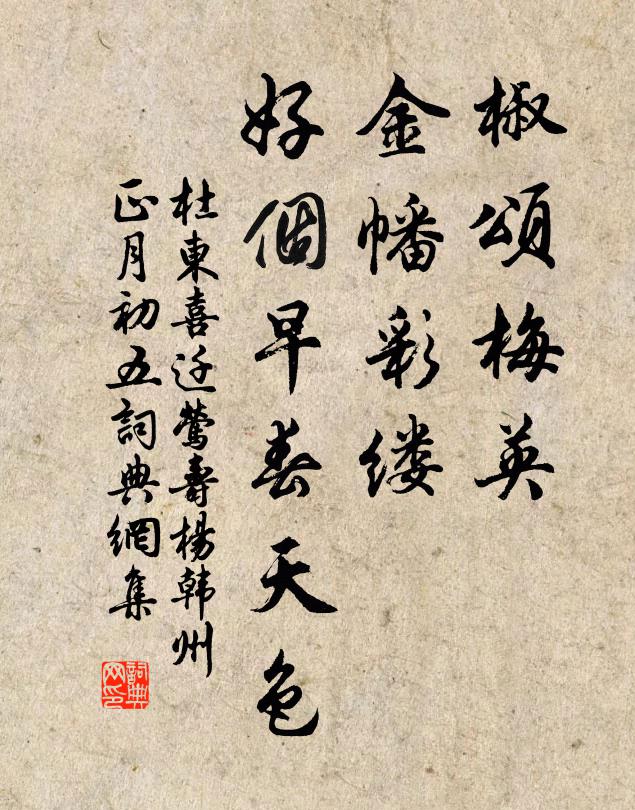 椒頌梅英
金幡彩缕
好個早春天色
杜東喜迁鶯壽楊韩州
正月初五詞典網集
詞典
网印